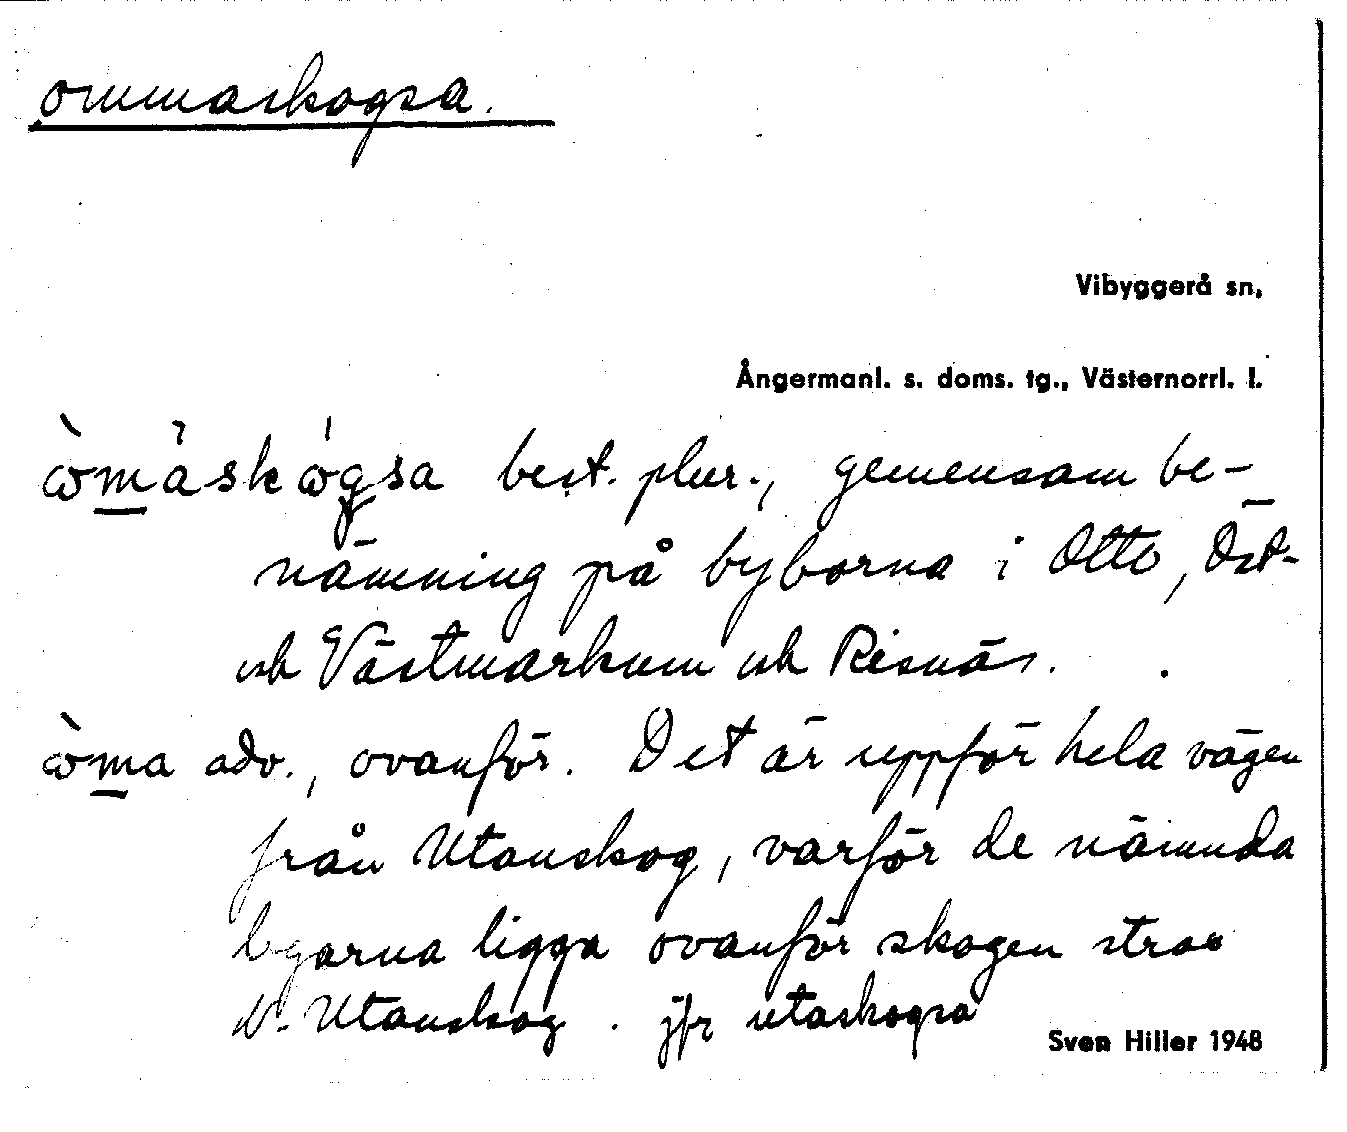 ommaskogsa.
Vibyggerå sn,
Ångermanl. s. doms. tg., Västernorrl. l.
best. plur., gemensam be-
nämning på byborna i Otto, Öst-
och Västmarkum och Risnäs.
adv., ovanför. Det är uppför hela vägen
från Utanskog, varför de nämnda
byarna ligga ovanför skogen strax
V. Utanskog. jfr utaskogsa
Sven Hiller 1948